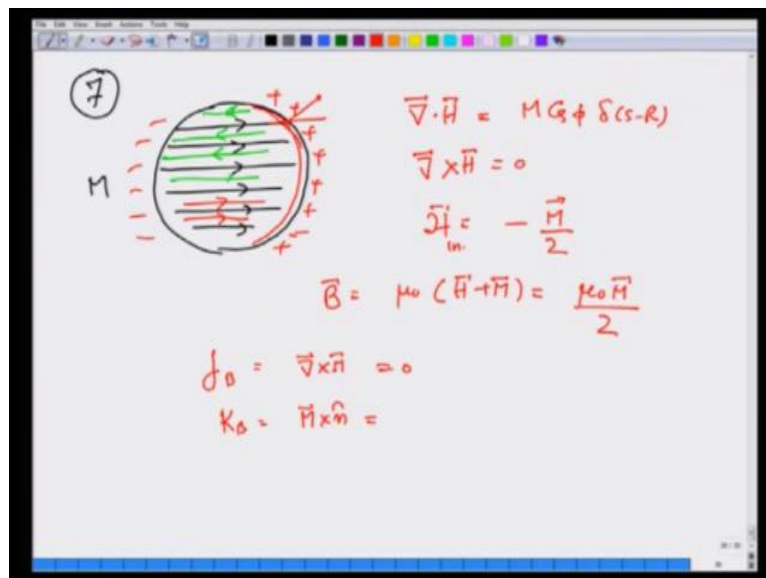 File Edit View Insert Actions Tools Help
7
M
∇⃗·H⃗ = M Cos ϕ δ(s-R)
∇⃗×H⃗ = 0
H⃗in. = - M⃗/2
B⃗ = μ₀ (H⃗+M⃗) = μ₀M⃗/2
J_B = ∇⃗×M⃗ = 0
K_B = M⃗×n̂ =